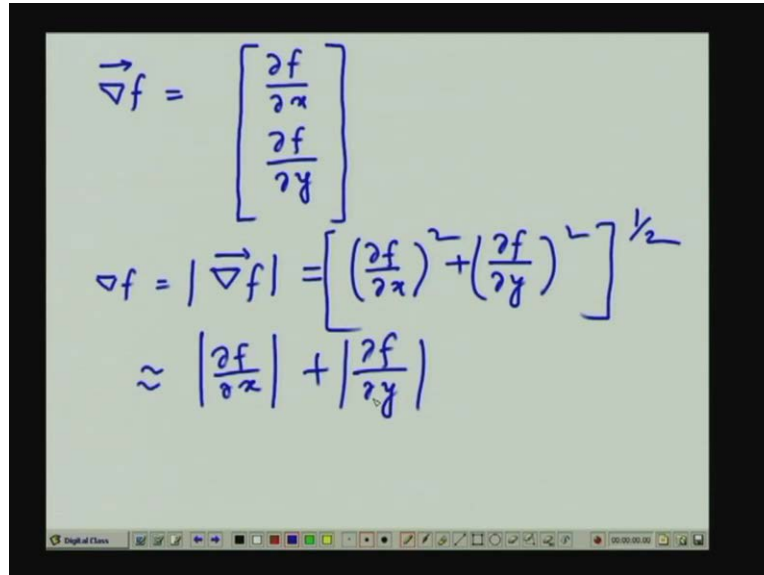 ∇⃗f = [ ∂f/∂x ∂f/∂y ]
∇f = | ∇⃗f | = [ (∂f/∂x)² + (∂f/∂y)² ]^1/2
≈ |∂f/∂x| + |∂f/∂y|
Digital Class 00:00:00.00